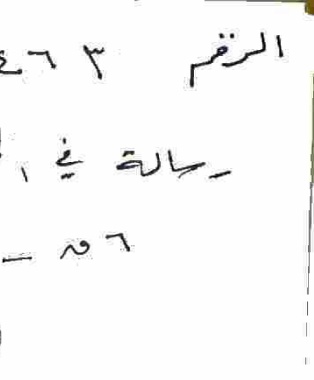 الرقم ٣ ٦ ٤
رسالة في ا
٦ ق —